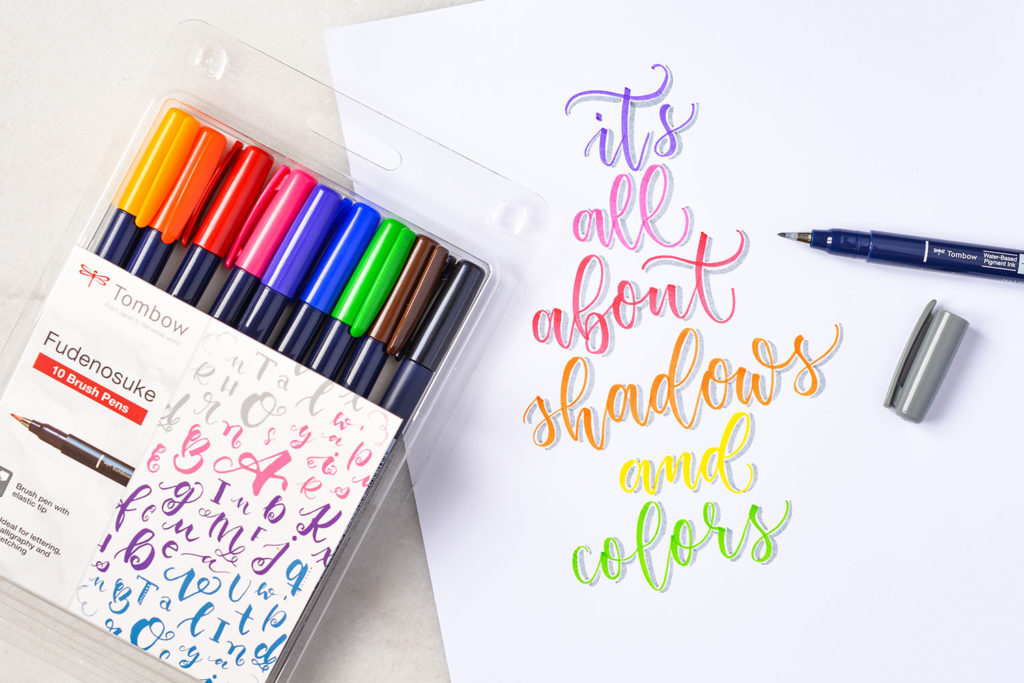 Tombow
Fudenosuke
10 Brush Pens
Brush pen with
elastic tip
Ideal for lettering,
calligraphy and
sketching
it's
all
about
shadows
and
colors
Tombow
Water-Based
Pigment Ink